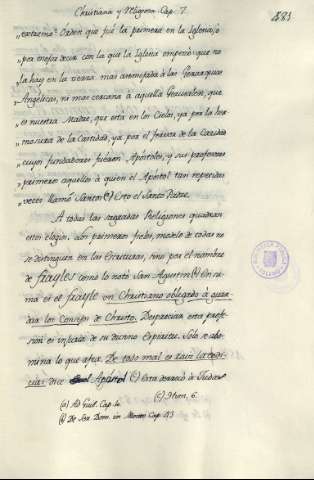 Christiana y Religiosa Cap. 7.
483
"extrema: Orden que fué la primera en la Iglesia; ò
"por mejor decir con la que la Iglesia empezò: que no
"la hay en la tierra mas semejante à las Gerarquias
"Angelicas, ni mas cercana à aquella Gerusalen, que
"es nuestra Madre, que està en los Cielos, yà por la her-
"mosura de la Castidad, yà por el fervor de la Caridad
"cuyos fundadores fueron Apostoles, y sus profesores
"primeros aquellos à quien el Apostol tan repetidas
"veces llamò Santos (a) Esto el Santo Padre.
A todas las sagradas Religiones quadran
estos elogios. Los primeros fieles, modelo de todas no
se distinguian en las Escrituras, sino por el nombre
de frayles como lo notò San Agustin (b) En su-
ma es el frayle un Christiano obligado à guar-
dar los Consejos de Christo. Despreciar esta profe-
sion es injuria de su divino Espiritu. Solo se abo-
mina lo que
De todo mal es raiz la codi-
cia: dice el Apostol (c) esta
(a) Ad Guil. Cap. 4.
(c) 1 Item. 6.
(b) De Ser. Dom. in Monte Cap. 23